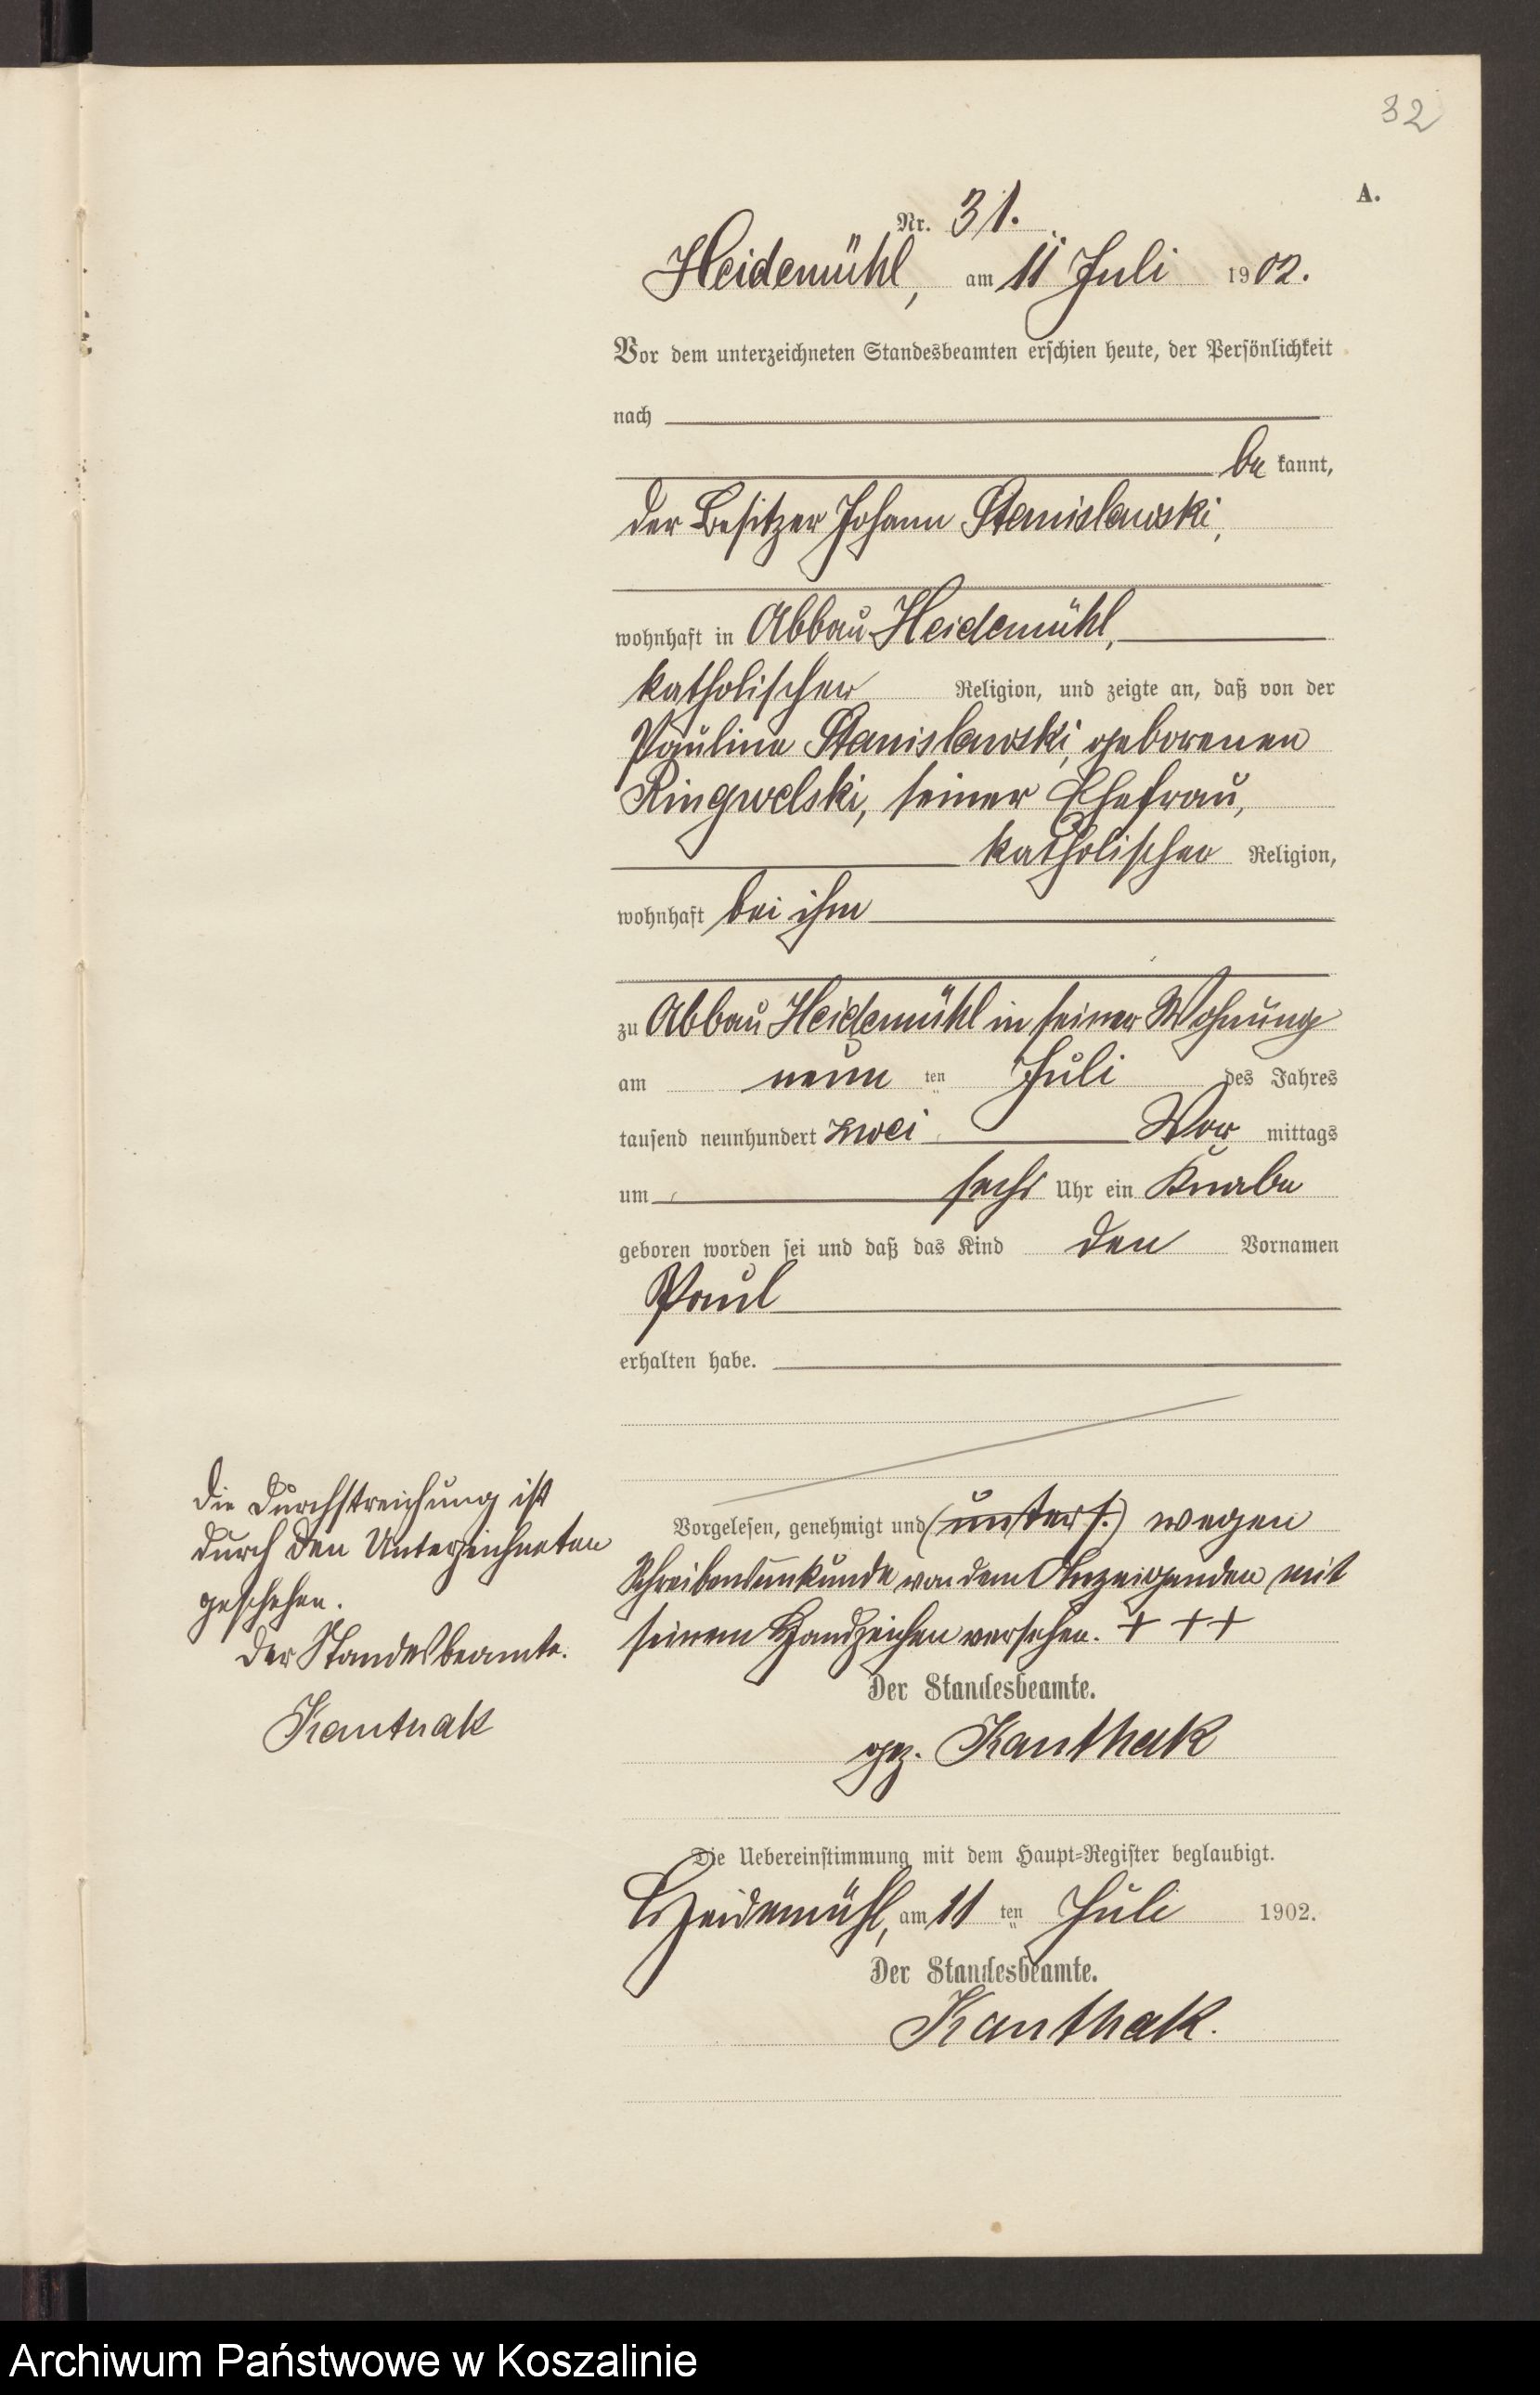 32
A.
Nr. 31.
Heidemühl, am 11 Juli 1902.
Vor dem unterzeichneten Standesbeamten erschien heute, der Persönlichkeit
nach
be kannt,
der Besitzer Johann Stanislawski,
wohnhaft in Abbau Heidemühl,
katholischer Religion, und zeigte an, daß von der
Pauline Stanislawski, geborenen
Ringwelski, seiner Ehefrau,
katholischer Religion,
wohnhaft bei ihm
zu Abbau Heidemühl in seiner Wohnung
am neun ten Juli des Jahres
tausend neunhundert zwei Vor mittags
um sechs Uhr ein Knabe
geboren worden sei und daß das Kind den Vornamen
Paul
erhalten habe.
Vorgelesen, genehmigt und (unters.) wegen
Schreibensunkunde von dem Anzeigenden mit
seinem Handzeichen versehen. + + +
Der Standesbeamte.
gez. Kanthak
Die Durchstreichung ist
durch den Unterzeichneten
geschehen.
Der Standesbeamte.
Kanthak
Die Uebereinstimmung mit dem Haupt-Register beglaubigt.
Heidemühl, am 11 ten Juli 1902.
Der Standesbeamte.
Kanthak.
Archiwum Państwowe w Koszalinie